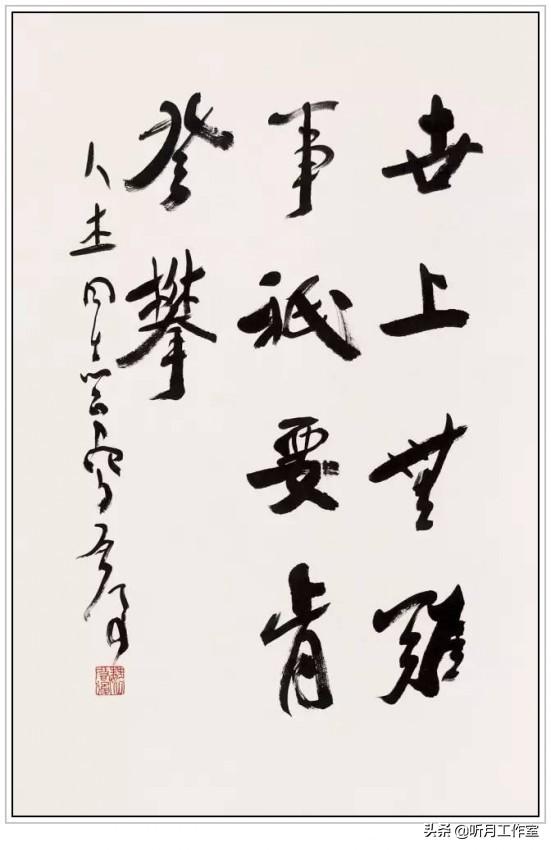 世上無難
事祇要肯
登攀
人杰同志
头条 @听月工作室